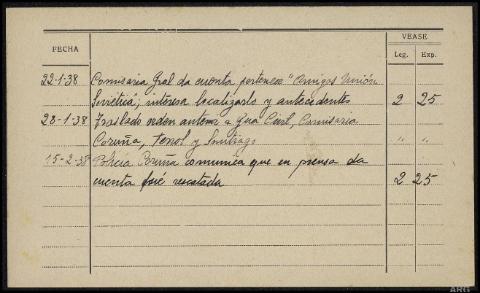 FECHA
VEASE
Leg. Exp.
22-1-38 Comisaria Gral da cuenta pertenece "Amigos Unión
Soviética", interesa localizarlo y antecedentes 2 25
28-1-38 Traslado orden anterior a Gua Civil, Comisaria
Coruña, Ferrol y Santiago " "
15-2-38 Policia Coruña comunica que en prensa da
cuenta fué rescatada 2 25